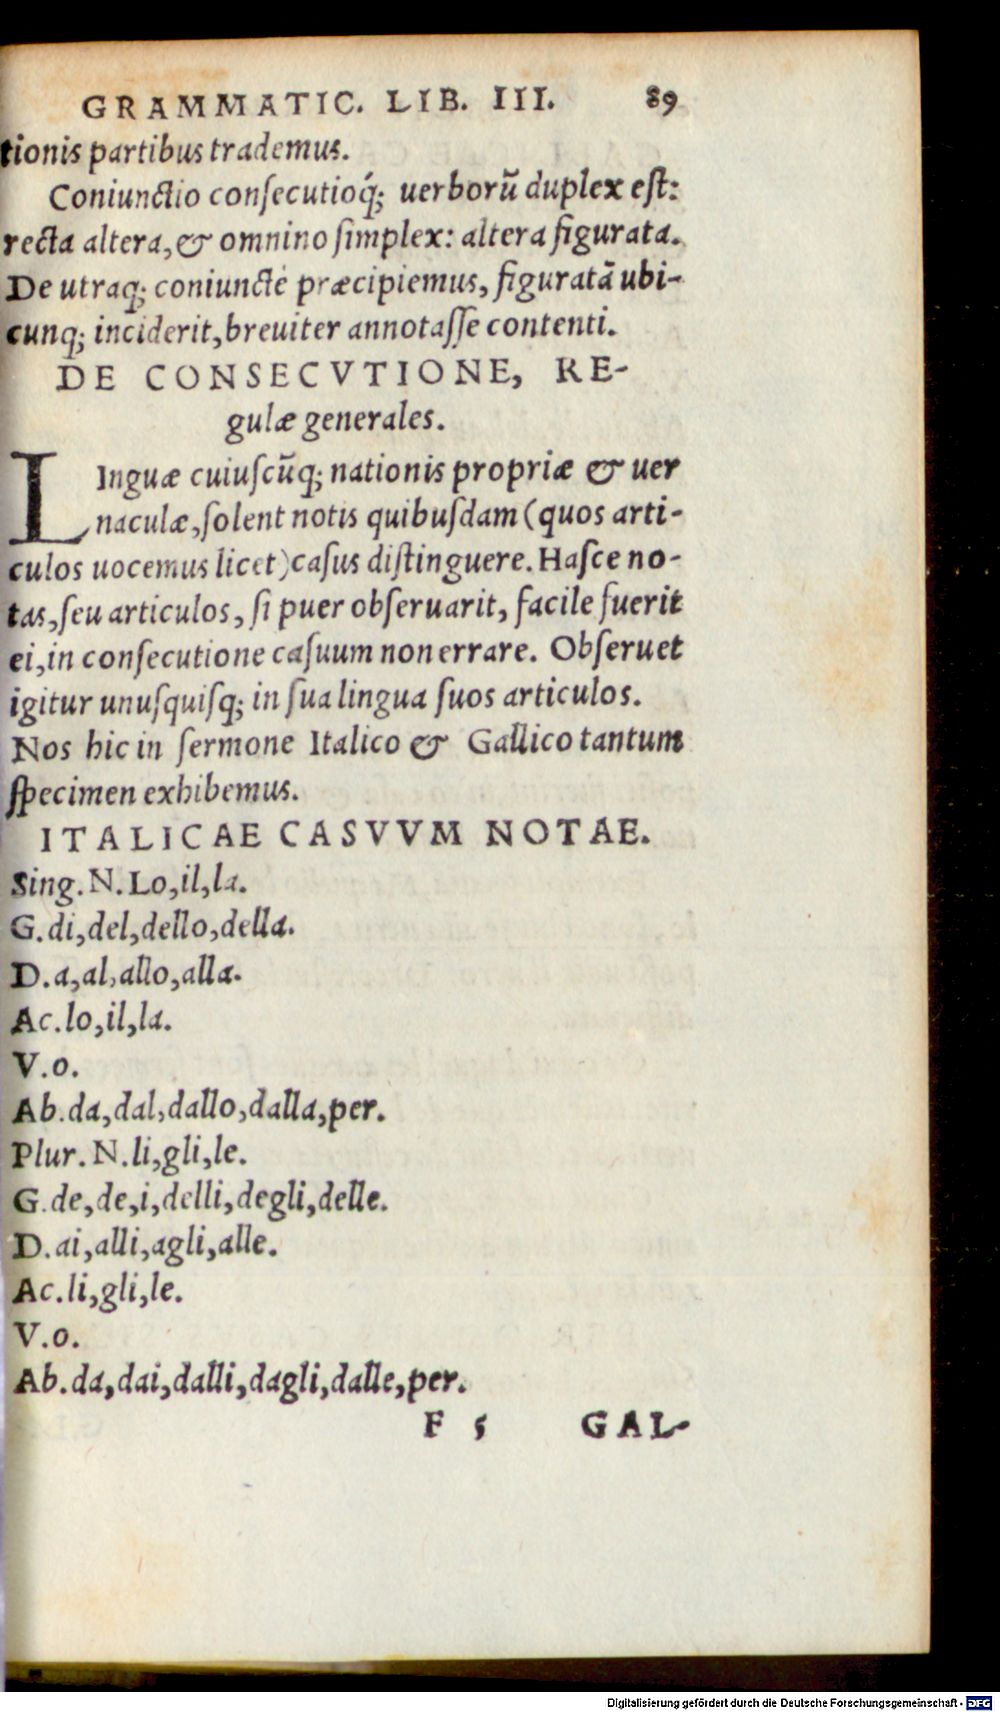 GRAMMATIC. LIB. III. 89
tionis partibus trademus.
Coniunctio conſecutioq́; uerborũ duplex eſt:
recta altera, & omnino ſimplex: altera figurata.
De utraq; coniuncte præcipiemus, figuratã ubi-
cunq; inciderit, breuiter annotaſſe contenti.
DE CONSECVTIONE, RE-
gulæ generales.
LInguæ cuiuſcũq; nationis propriæ & uer
naculæ, ſolent notis quibuſdam (quos arti-
culos uocemus licet) caſus diſtinguere. Haſce no-
tas, ſeu articulos, ſi puer obſeruarit, facile fuerit
ei, in conſecutione caſuum non errare. Obſeruet
igitur unuſquiſq; in ſua lingua ſuos articulos.
Nos hic in ſermone Italico & Gallico tantum
ſpecimen exhibemus.
ITALICAE CASVVM NOTAE.
Sing. N. Lo, il, la.
G. di, del, dello, della.
D. a, al, allo, alla.
Ac. lo, il, la.
V. o.
Ab. da, dal, dallo, dalla, per.
Plur. N. li, gli, le.
G. de, de, i, delli, degli, delle.
D. ai, alli, agli, alle.
Ac. li, gli, le.
V. o.
Ab. da, dai, dalli, dagli, dalle, per.
F 5 GAL-
Digitalisierung gefördert durch die Deutsche Forschungsgemeinschaft - DFG